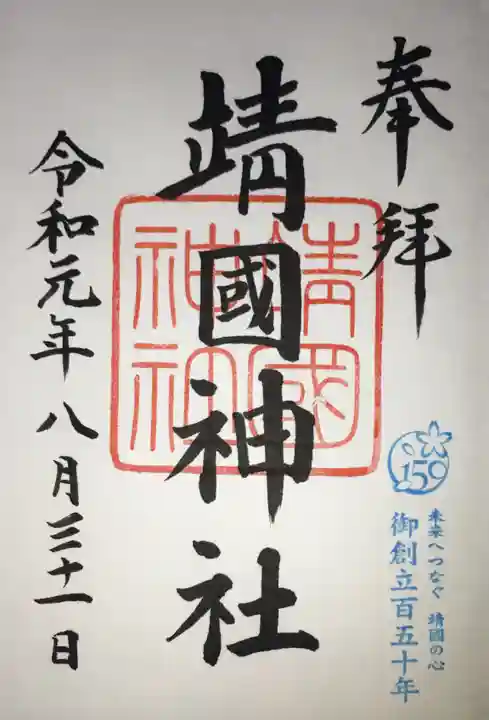 奉拝
靖國神社
靖國神社
令和元年八月三十一日
150
未来へつなぐ 靖國の心
御創立百五十年